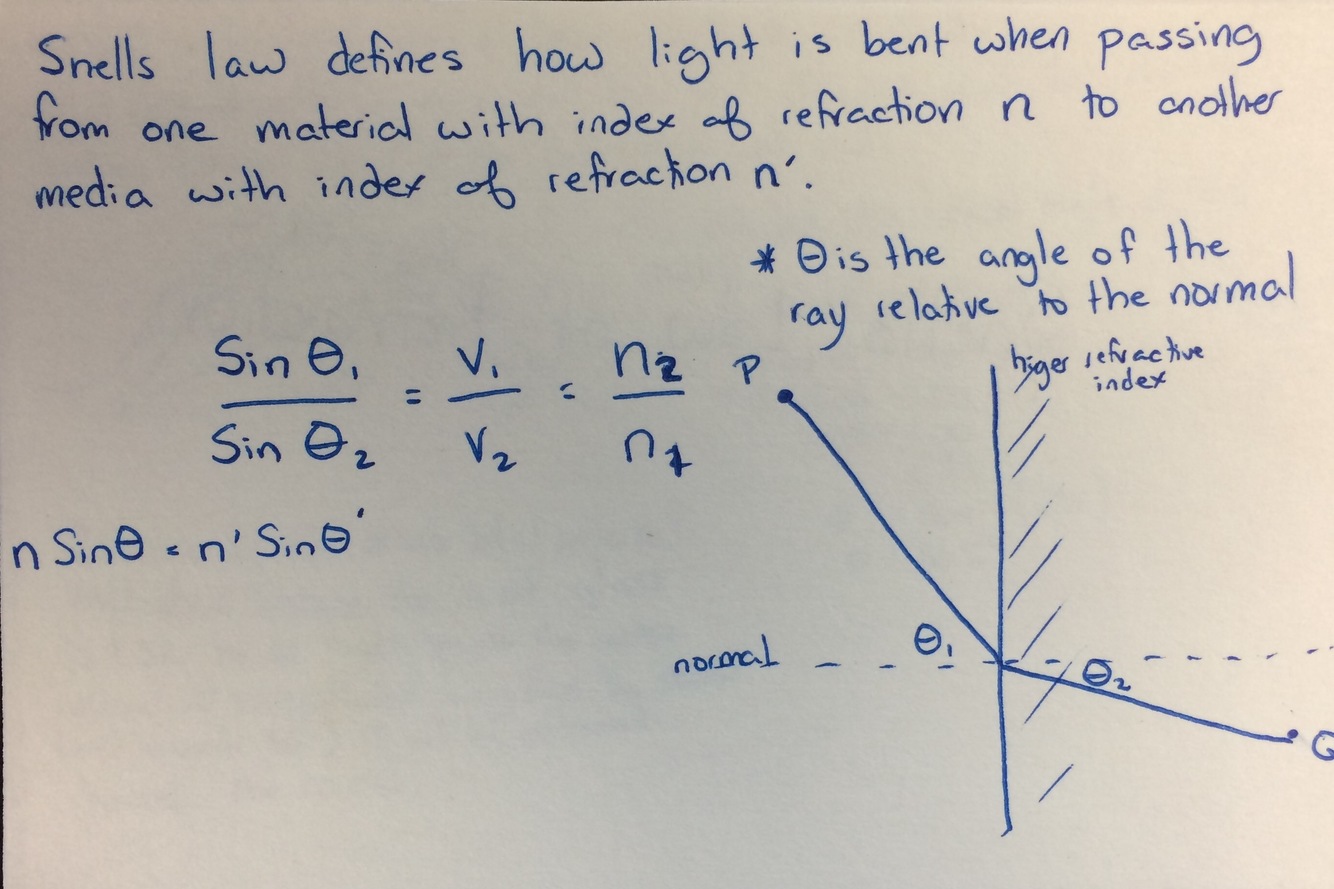 Snells law defines how light is bent when passing
from one material with index of refraction n to another
media with index of refraction n'.
* θ is the angle of the
ray relative to the normal
Sin θ₁ / Sin θ₂ = V₁ / V₂ = n₂ / n₁
P
higer refractive
index
n Sinθ = n' Sinθ'
normal
θ₁
θ₂